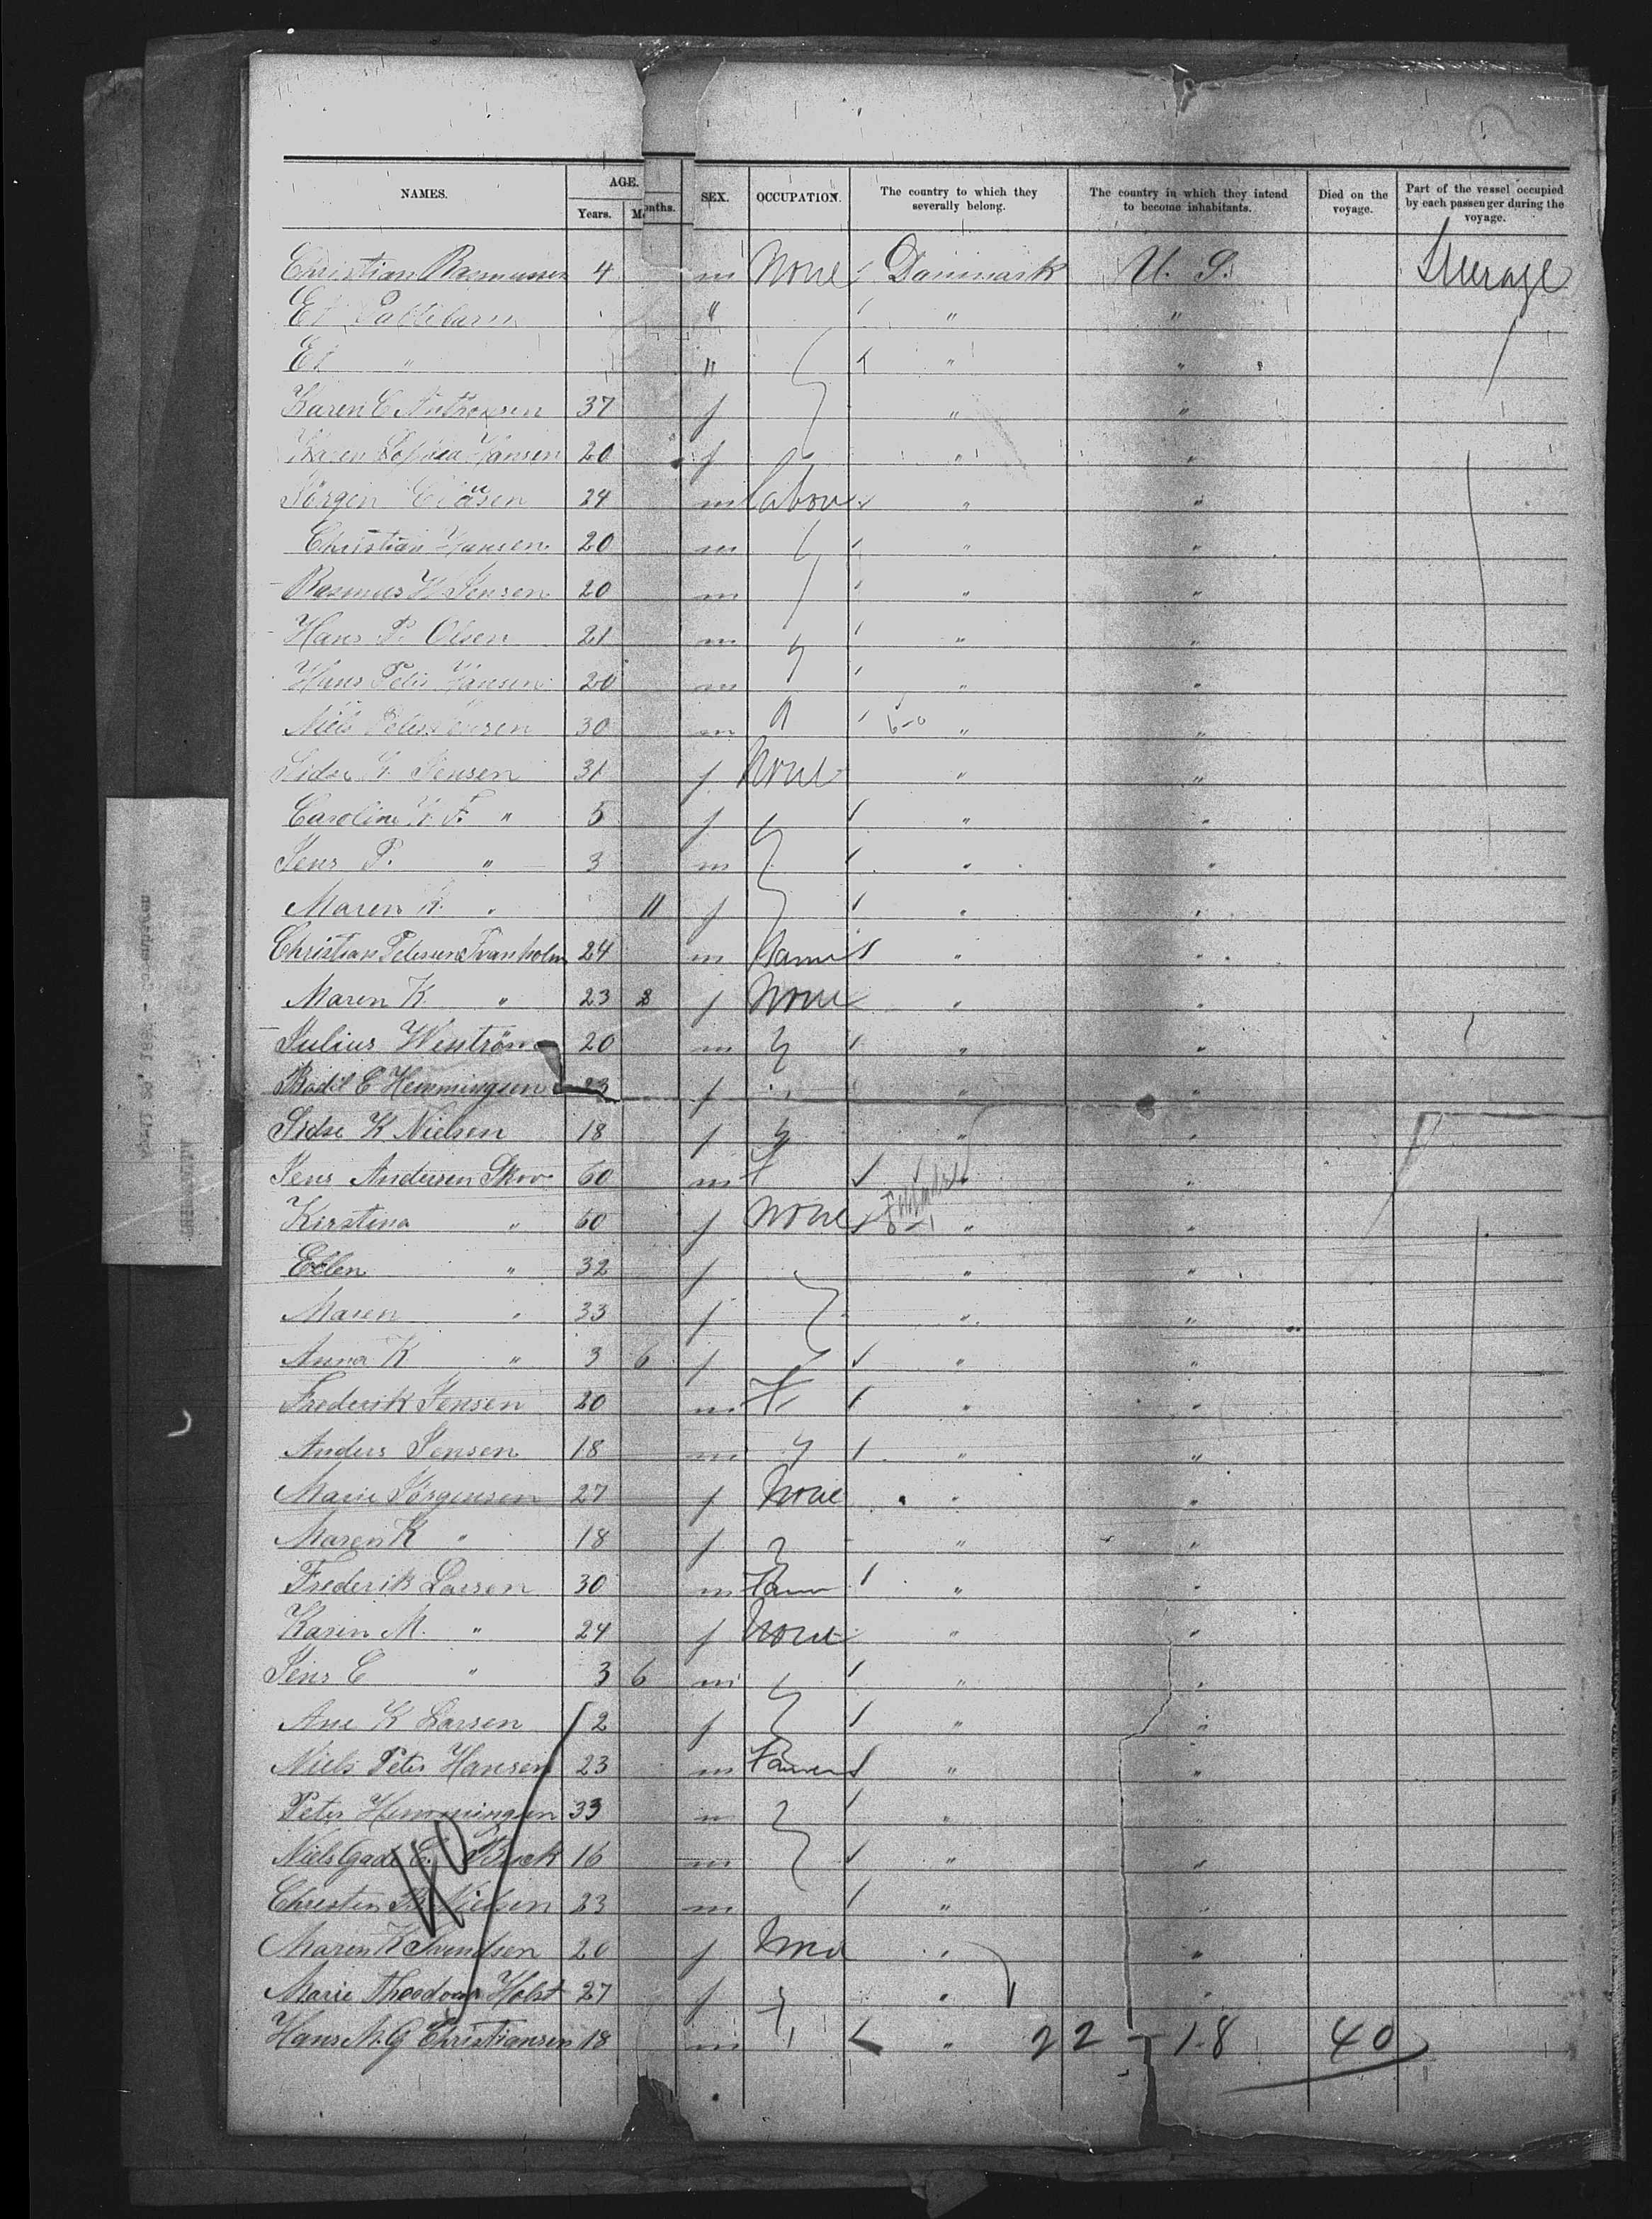 NAMES. AGE. SEX. OCCUPATION. The country to which they severally belong. The country in which they intend to become inhabitants. Died on the voyage. Part of the vessel occupied by each passenger during the voyage.
Years. Months.
Christian Rasmussen 4 m None Danmark U. S. Steerage
Et Pattebarn " " "
Et " " " "
Karen C 37 f " "
Karen Sophia Hansen 20 f " "
Jörgen 24 m Labour " "
Christian Hansen 20 m " "
Rasmus H Jensen 20 m " "
Hans P. Olsen 21 m " "
Hans Peter Hansen 20 m " "
Niels Peter 30 m " "
Sidse G. Jensen 31 f None " "
Caroline K. F. " 5 f " "
Jens P. " 3 m " "
Maren K. " 11 f " "
Christian Petersen Svanholm 24 m " "
Maren K. " 23 8 f None " "
Julius Wenström 20 m " "
Bodil E Hemmingsen 23 f " "
Sidse K Nielsen 18 f " "
Jens Andersen Skov 60 m "
Kirstina " 60 f None " "
Ellen " 32 f " "
Maren " 33 f " "
Anna K " 3 6 f " "
Frederik Jensen 20 m " "
Anders Jensen 18 m " "
Marie Jörgensen 27 f None " "
Maren K " 18 f " "
Frederik Larsen 30 m Farmer " "
Karen M. " 24 f None " "
Jens C " 3 6 m " "
Ane K Larsen 2 f " "
Niels Peter Hansen 23 m Farmer " "
Peter Hemmingsen 33 m "
Niels Gade E. Buck 16 m " "
Christen Nielsen 23 m " "
Maren K Svendsen 20 f None " "
Marie Theodora Holst 27 f " "
Hans M. G Christiansen 18 m " 22 - 18 40
40